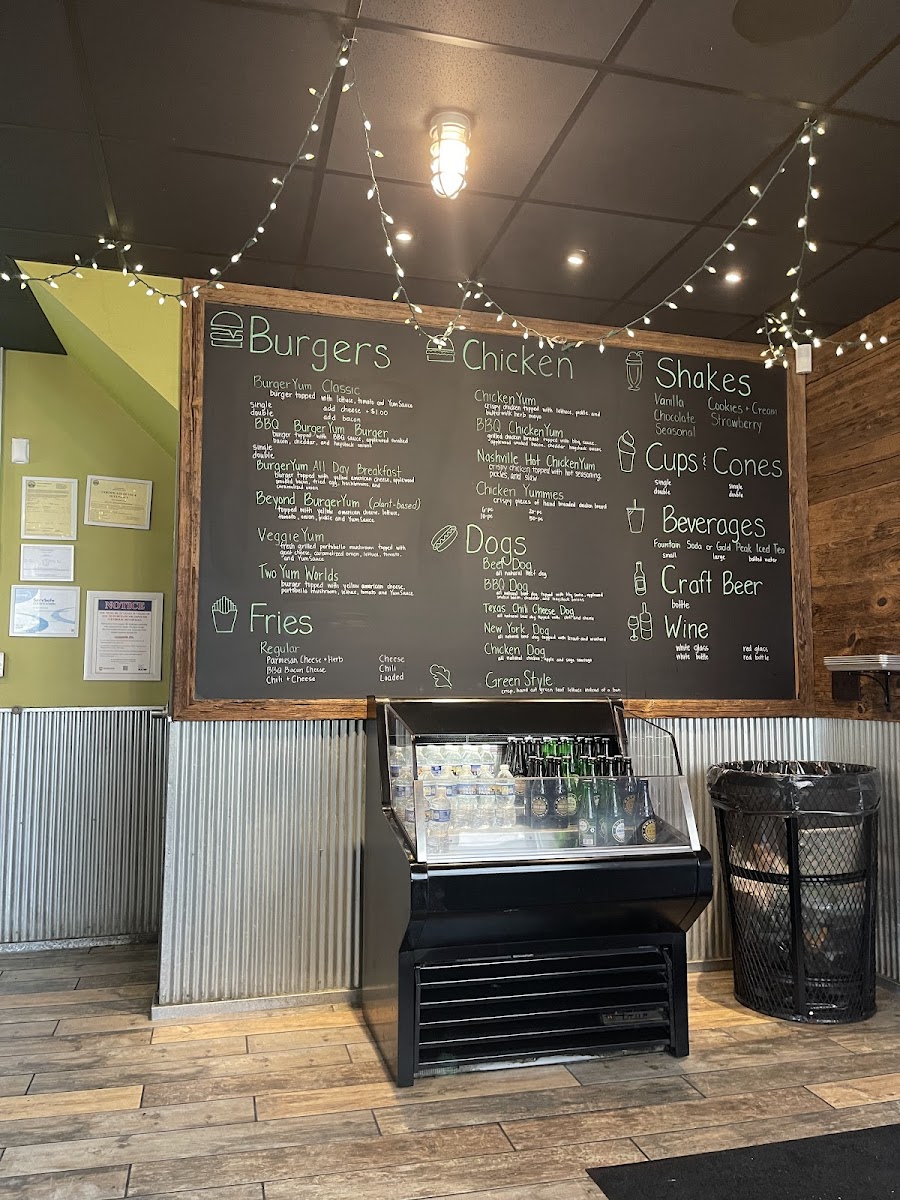 Burgers
BurgerYum Classic
burger topped with lettuce, tomato and YumSauce
single add cheese + $1.00
double add bacon
BBQ BurgerYum Burger
burger topped with BBQ sauce, applewood smoked
bacon, cheddar, and haystack onions
single
double
BurgerYum All Day Breakfast
burger topped with yellow american cheese, applewood
smoked bacon, fried egg, hashbrowns, and
caramelized onion
Beyond BurgerYum (plant-based)
topped with yellow american cheese, lettuce,
tomato, onion, pickle and YumSauce
VeggieYum
fresh grilled portobello mushroom topped with
goat cheese, caramelized onion, lettuce, tomato,
and YumSauce
Two Yum Worlds
burger topped with yellow american cheese,
portobello mushroom, lettuce, tomato and YumSauce
Fries
Regular
Parmesan Cheese + Herb Cheese
BBQ Bacon Cheese Chili
Chili + Cheese Loaded
Chicken
ChickenYum
crispy chicken topped with lettuce, pickle and
buttermilk herb mayo
BBQ ChickenYum
grilled chicken breast topped with bbq sauce,
applewood smoked bacon, cheddar haystack onions
Nashville Hot ChickenYum
crispy chicken topped with hot seasoning,
pickles, and slaw
Chicken Yummies
crispy pieces of hand breaded chicken breast
Dogs
Beef Dog
all natural beef dog
BBQ Dog
all natural beef dog topped with bbq sauce, applewood
smoked bacon, cheddar and haystack onions
Texas Chili Cheese Dog
all natural beef dog topped with
New York Dog
all natural beef dog topped with kraut and mustard
Chicken Dog
all natural chicken, apple and sage sausage
Green Style
crisp, hand cut green leaf lettuce instead of a bun
Shakes
Vanilla Cookies + Cream
Chocolate Strawberry
Seasonal
Cups & Cones
single single
double double
Beverages
Fountain Soda or Gold Peak Iced Tea
small large bottled water
Craft Beer
bottle
Wine
white glass red glass
white bottle red bottle
NOTICE